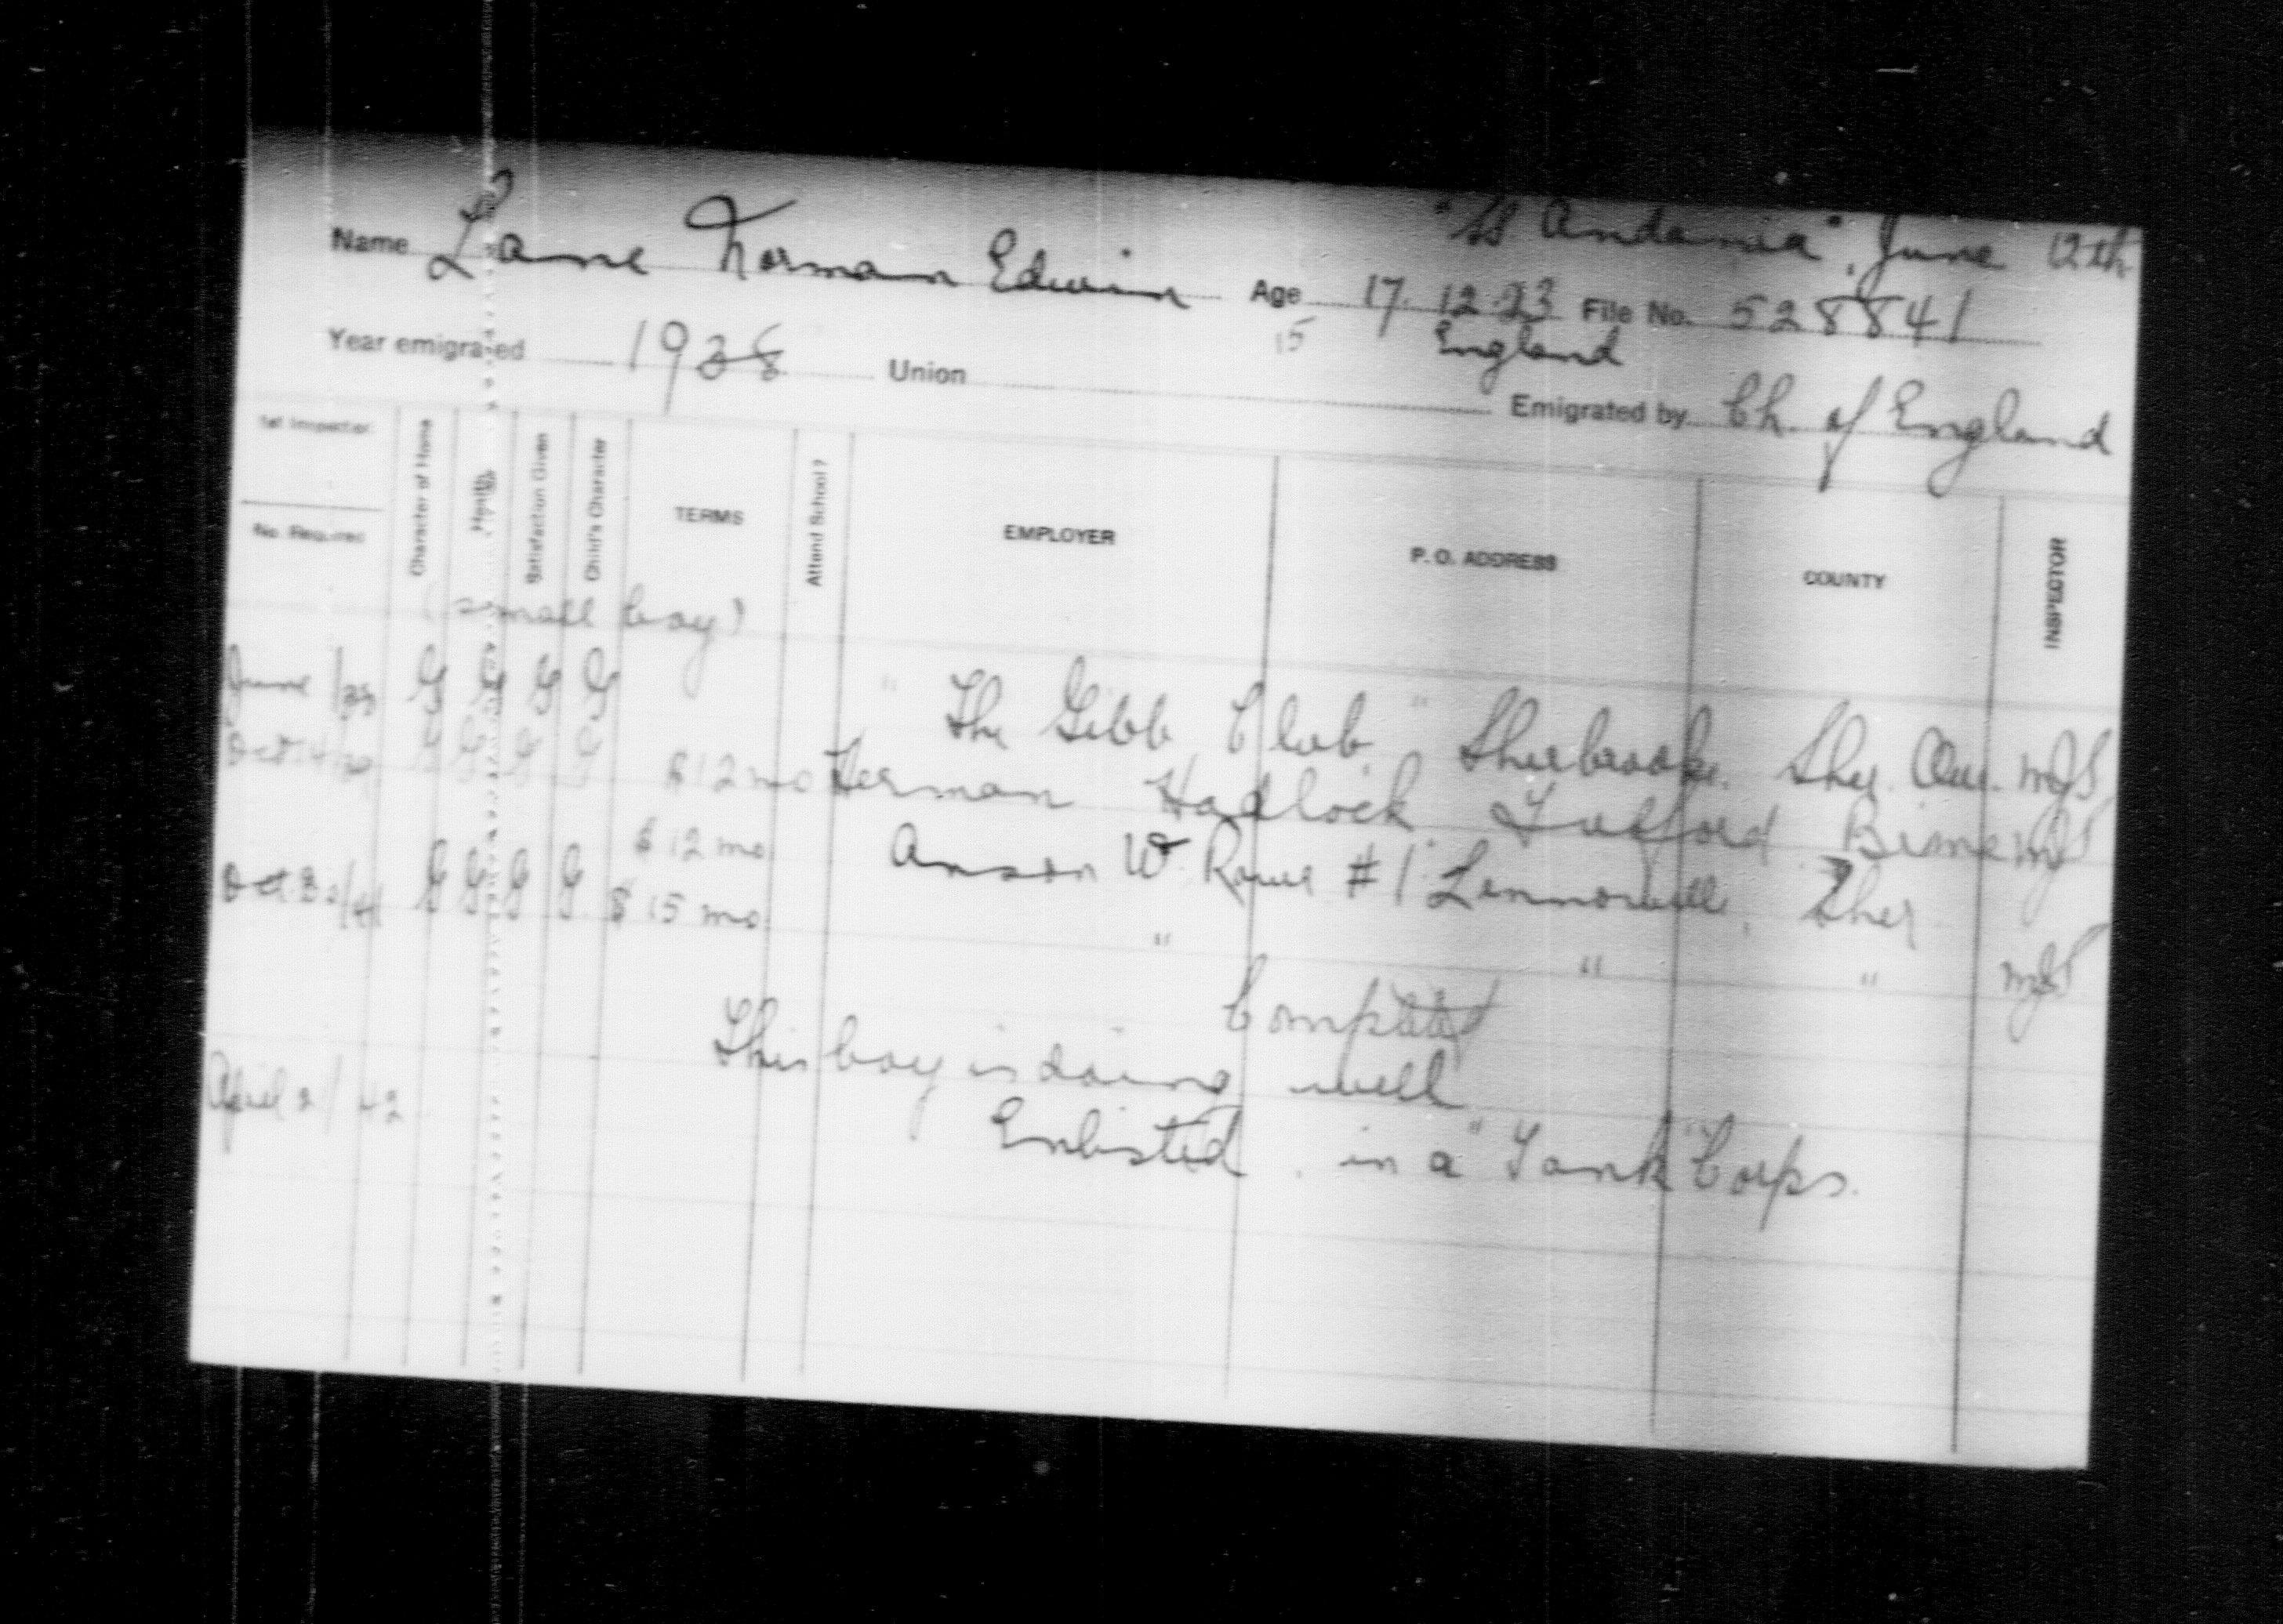 "SS Andania", June 12th
Name Lane Norman Edwin Age 17. 12. 23 File No. 528841
15 England
Year emigrated 1938 Union Emigrated by Ch. of England
1st Inspection Character of Home Health Satisfaction Given Child's Character TERMS Attend School? EMPLOYER P. O. ADDRESS COUNTY INSPECTOR
No. Required
(small boy)
June /39 G G G G "The Gibb Club" Sherbrooke. Sher. Que. MJS
Oct 14/39 G G G G $12 mo Herman Hadlock, Fulford Brome MJS
$12 mo Anson W. Rowe #1 Lennoxville, Sher
Oct 30/41 G G G G $15 mo " " " MJS
Completed
This boy is doing well
April 2/42 Enlisted in a "Tank" Corps.